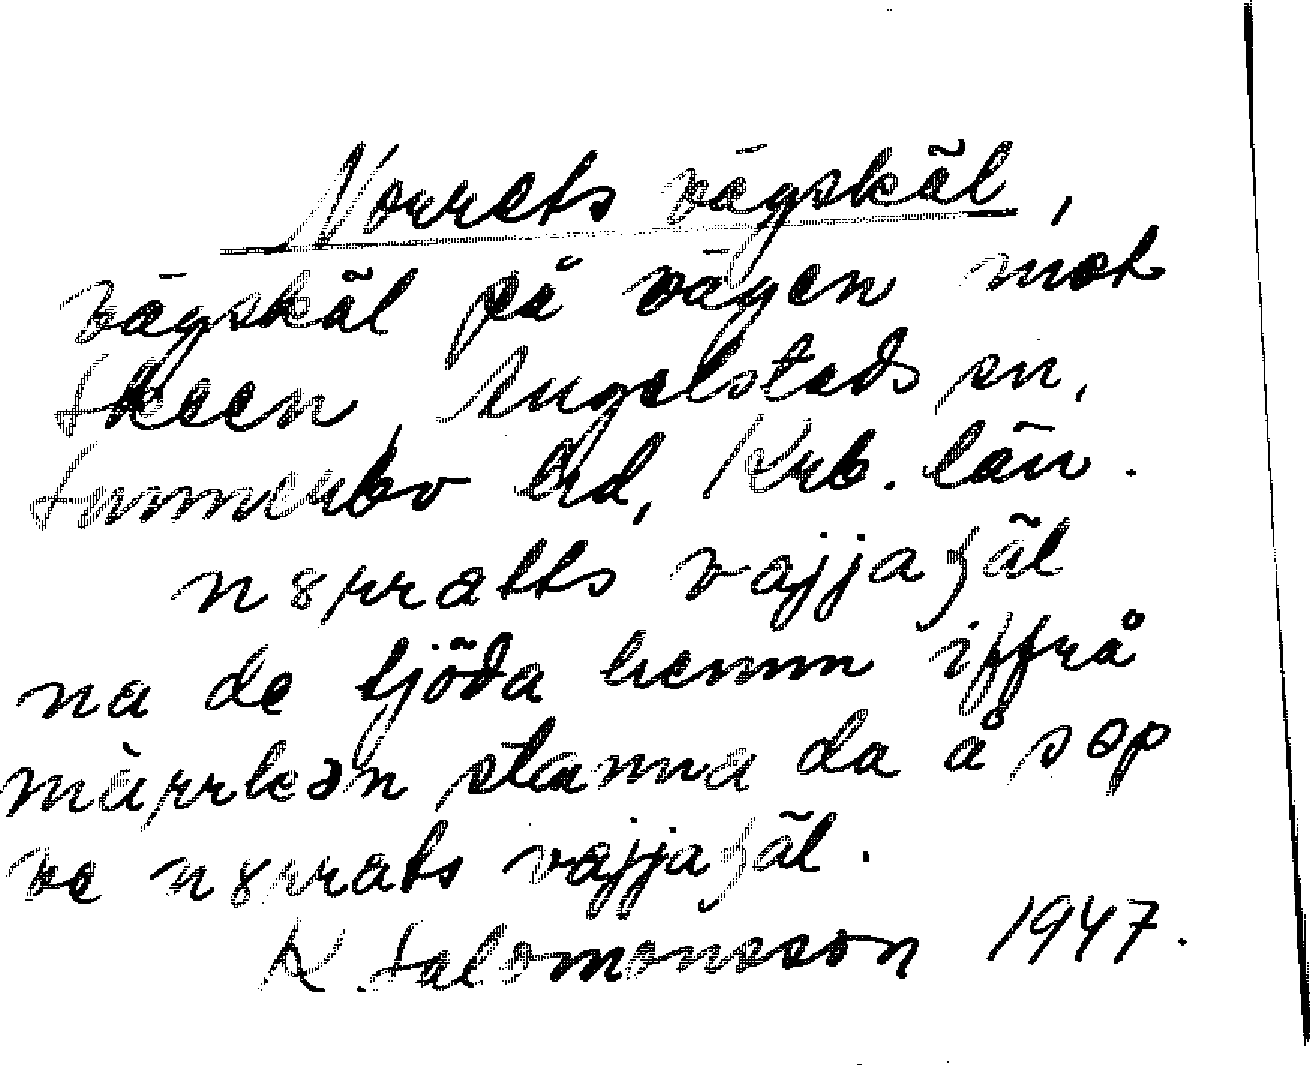 Norrets vägskäl,
vägskäl på vägen mot
Skeen, Angelstads sn,
Sunnerbo hd, Krb. län.
n8rratts vajjaʃäl
na de tjöda hemm iffrå
märrkən stanna da å søp
ve n8rrats vajjaʃäl.
K. Salomonsson 1947.